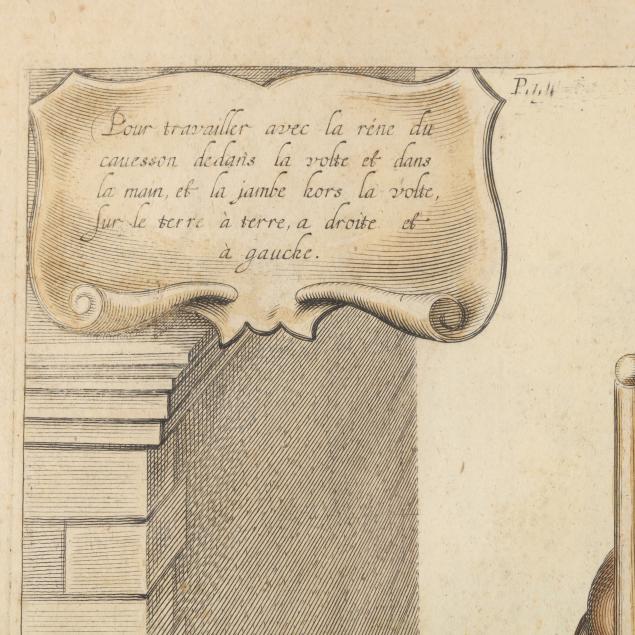 Pour travailler avec la réne du
cauesson dedans la volte et dans
la main, et la jambe hors la volte,
sur le terre à terre, a droite et
à gauche.